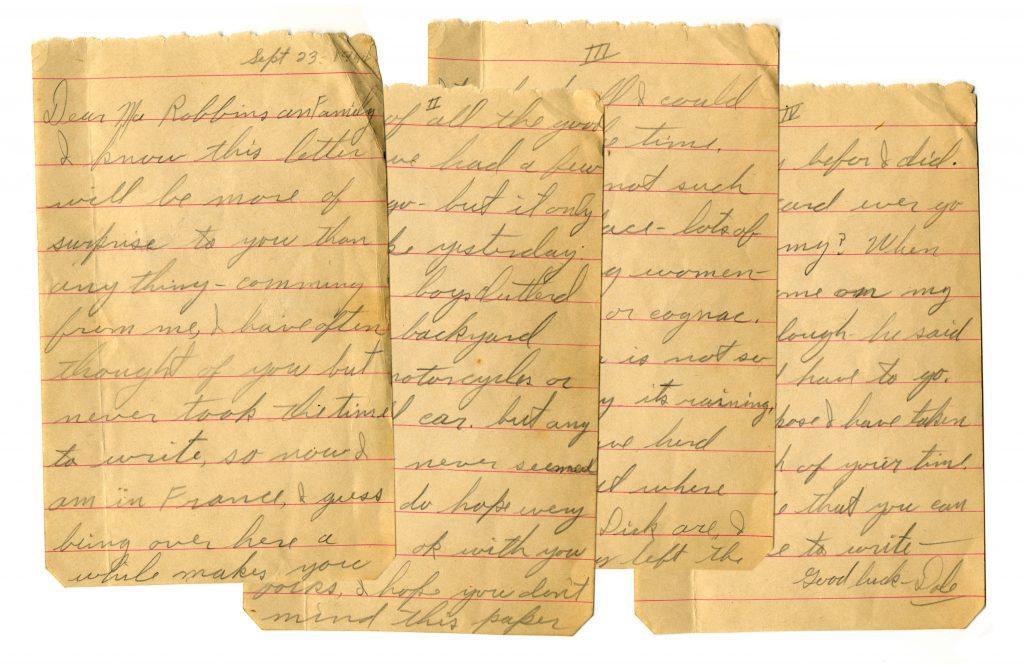 Sept 23- 1944
Dear Mr Robbins an Family
I know this letter
will be more of
surprise to you than
any thing - comming
from me, I have often
thought of you but
never took the time
to write, so now I
am in France, I guess
being over here a
while makes you
II
of all the good
ve had a few
go - but it only
yesterday.
boys
backyard
motorcycles or
car. but any
never seemed
do hope every
ok with you
folks, I hope you don't
mind this paper
III
I could
time.
not such
ace - lots of
women -
or cognac.
is not so
its raining,
ve herd
where
Dick are, I
left the
IV
befor I did.
ever go
my? When
me on my
lough - he said
have to go.
pose I have taken
of your time
that you can
to write -
Good luck - Dale